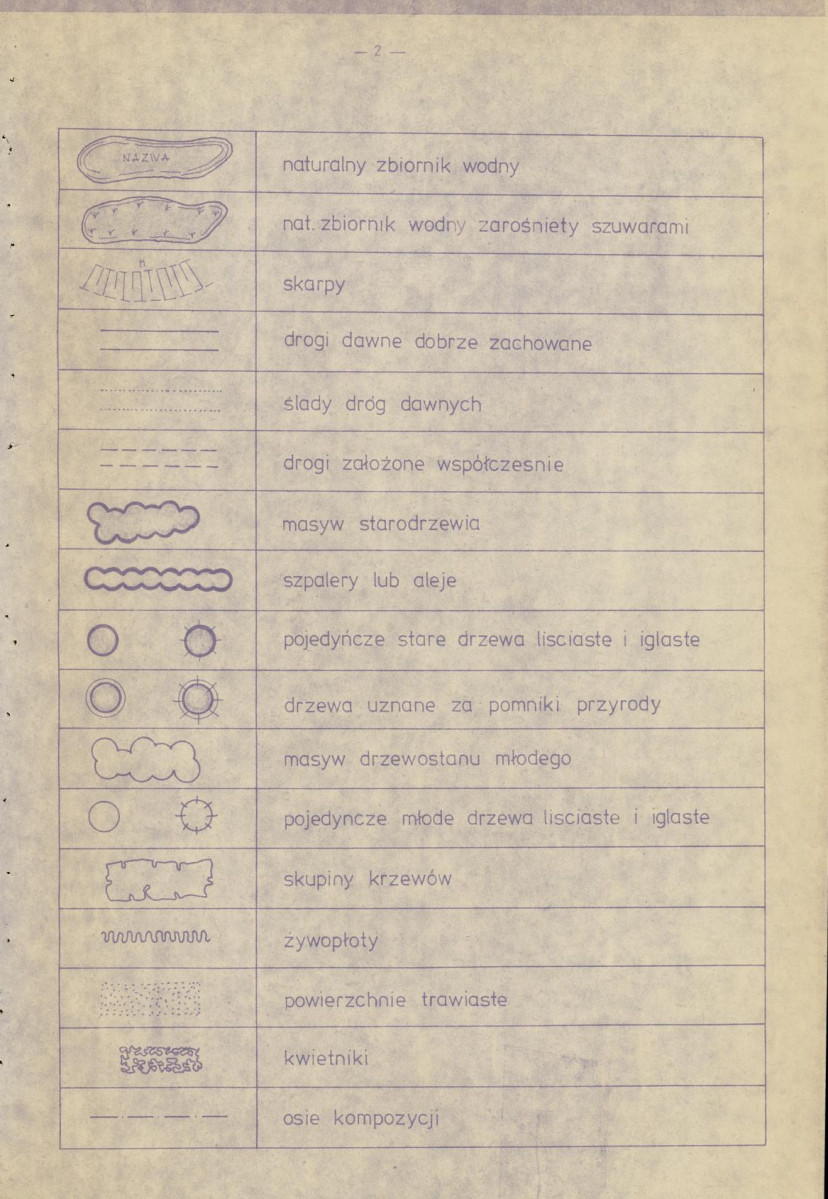 — 2 —
NAZWA
naturalny zbiornik wodny
nat. zbiornik wodny zarośniety szuwarami
skarpy
drogi dawne dobrze zachowane
ślady dróg dawnych
drogi założone współczesnie
masyw starodrzewia
szpalery lub aleje
pojedyńcze stare drzewa lisciaste i iglaste
drzewa uznane za pomniki przyrody
masyw drzewostanu młodego
pojedyncze młode drzewa lisciaste i iglaste
skupiny krzewów
żywopłoty
powierzchnie trawiaste
kwietniki
osie kompozycji